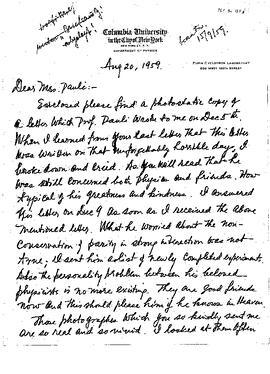 Columbia University
in the City of New York
NEW YORK, N.Y.
DEPARTMENT OF PHYSICS
Aug 20, 1959.
Dear Mrs. Pauli:
Enclosed please find a photostatic copy of
a letter which Prof. Pauli wrote to me on Dec
When I learned from your last letter that this letter
was written on that unforgettably horrible day, I
broke down and cried. As you will read that he
was still concerned both physics and friends. How
typical of his greatness and kindness. I answered
this letter on Dec 9 as soon as I received the above
mentioned letter. What he worried about the non-
Conservation of parity in strong interaction was not
true, I sent him a list of newly completed experiments.
Also the personality problem between his beloved
physicists is no more existing. They are good friends
now and this should please him if he knows in Heaven
Those photographs which you so kindly sent me
are so real and so vivid. I looked at them often